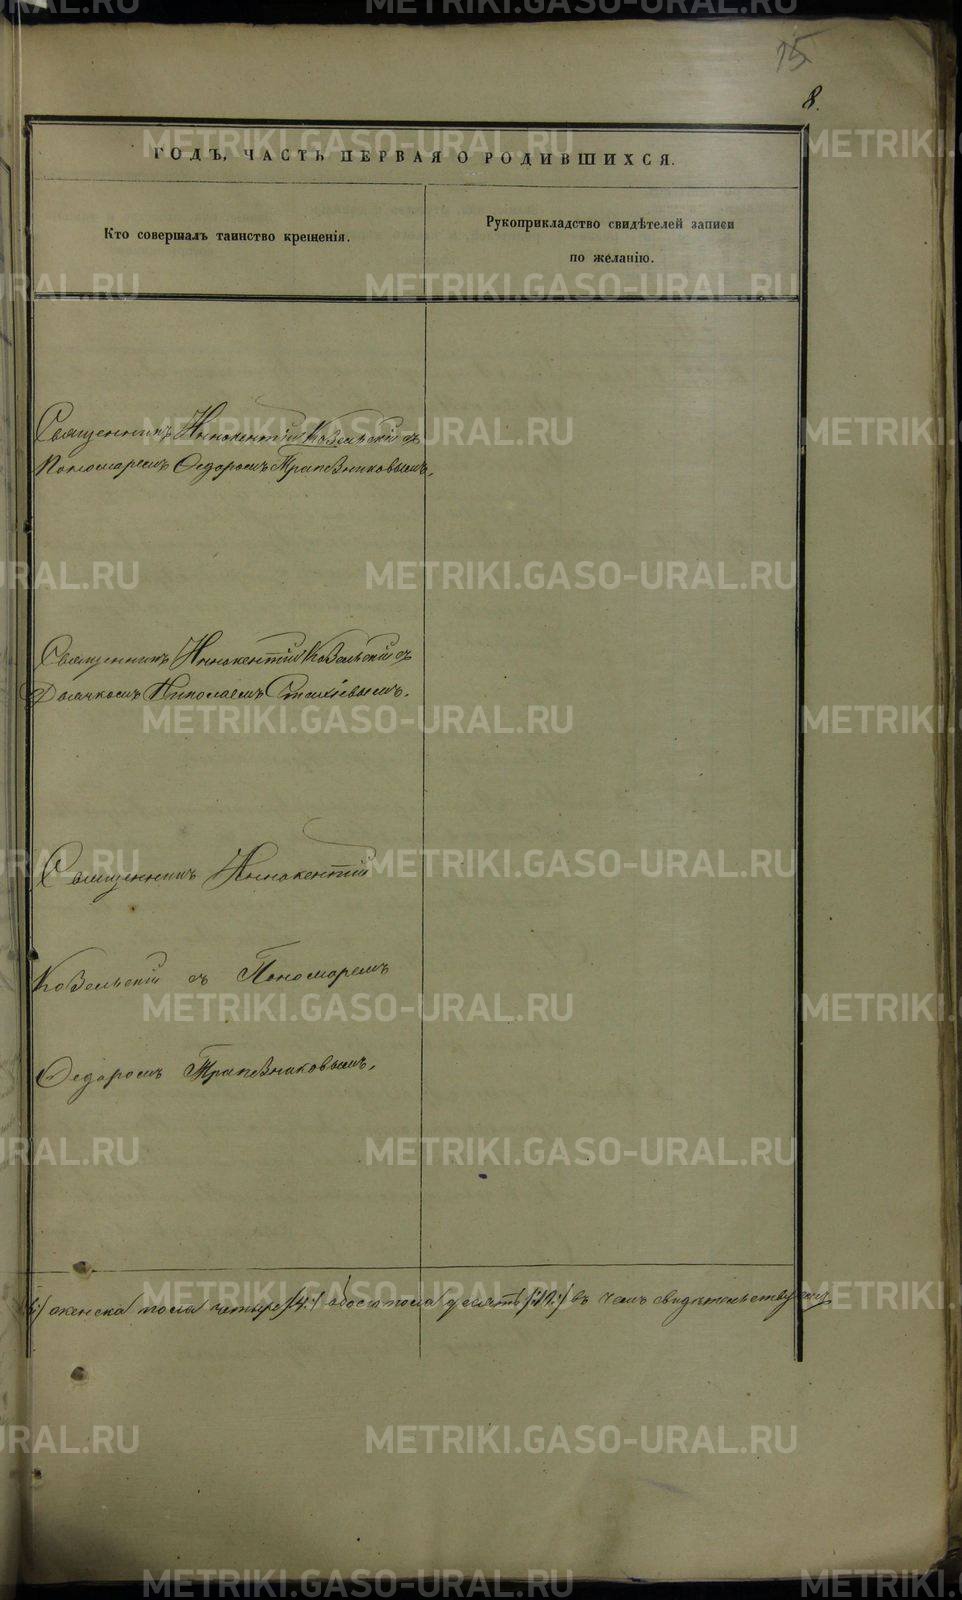 15
8.
ГОДЪ, ЧАСТЬ ПЕРВАЯ О РОДИВШИХСЯ.
Кто совершалъ таинство крещенія.
Рукоприкладство свидѣтелей записи
по желанію.
Священникъ Иннокентій Козельскій съ
Пономаремъ Ѳедоромъ Трапезниковымъ.
Священникъ Иннокентій Козельскій съ
Дьячкомъ Николаемъ
Священникъ Иннокентій
Козельскій съ Пономаремъ
Ѳедоромъ Трапезниковымъ.
женска пола четыре /4:/ обоего пола /:/ въ чемъ свидѣтельствуемъ
METRIKI.GASO-URAL.RU